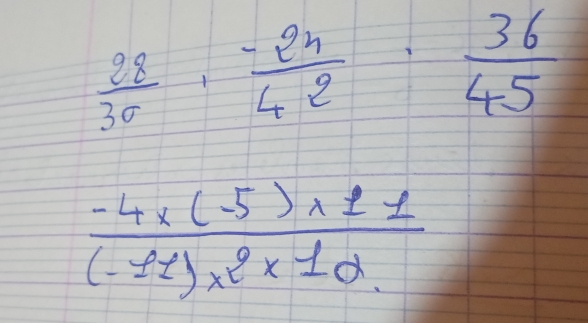 28/30 , -24/42 . 36/45
-4 × (-5) × 11 / (-11) × 2 × 10.